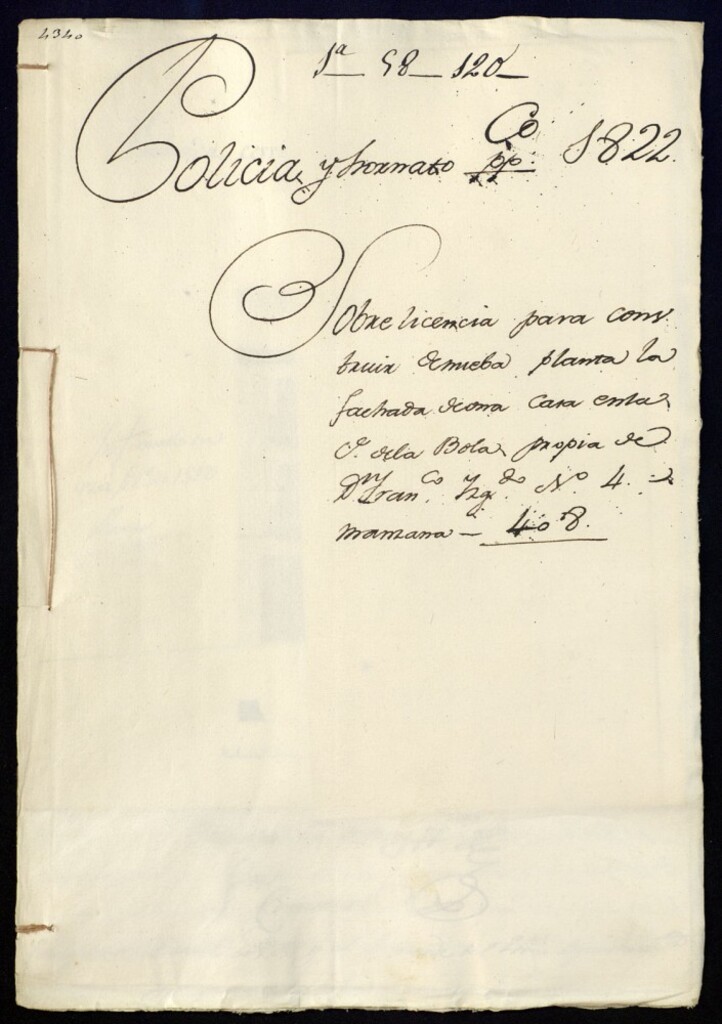 4340
1ª 58 120
Policia y hornato Co pp. 1822.
Sobre licencia para cons
truir de nueba planta la
fachada de una Casa en la
C. de la Bola propia de
Dn Franco Yzgdo No 4
manzana – 408.